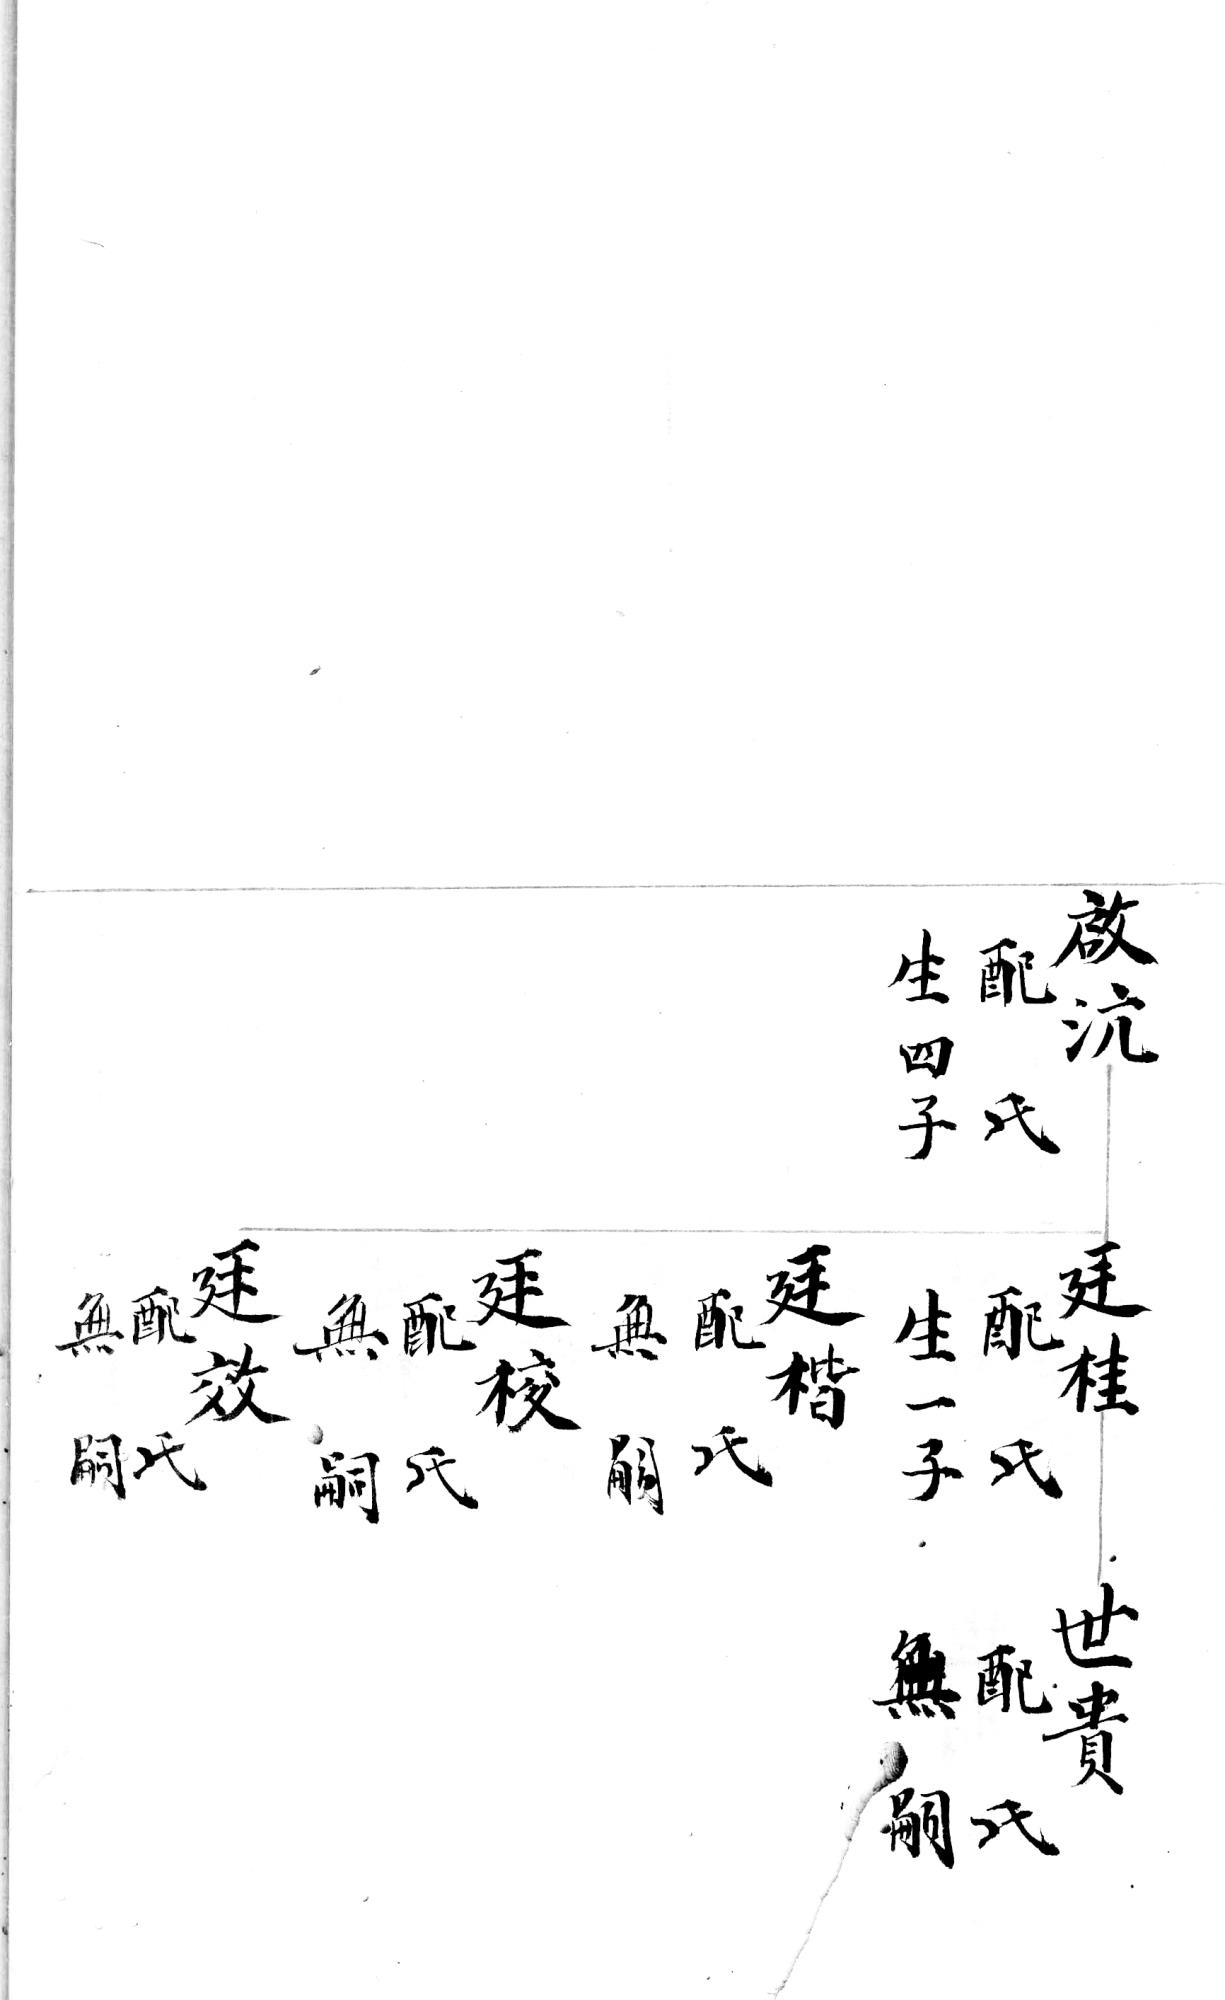 啟沆
配 氏
生四子
廷桂
配 氏
生一子
廷楷
配 氏
無 嗣
廷梭
配 氏
無 嗣
廷效
配 氏
無 嗣
世貴
配 氏
無 嗣